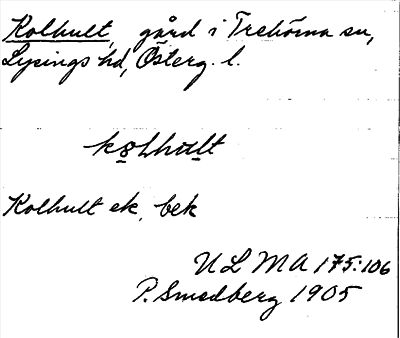 Kolhult, gård i Trehörna sn,
Lysings hd, Österg. l.
kolhult
Kolhult ek, bek
ULMA 175:106
P. Smedberg 1905